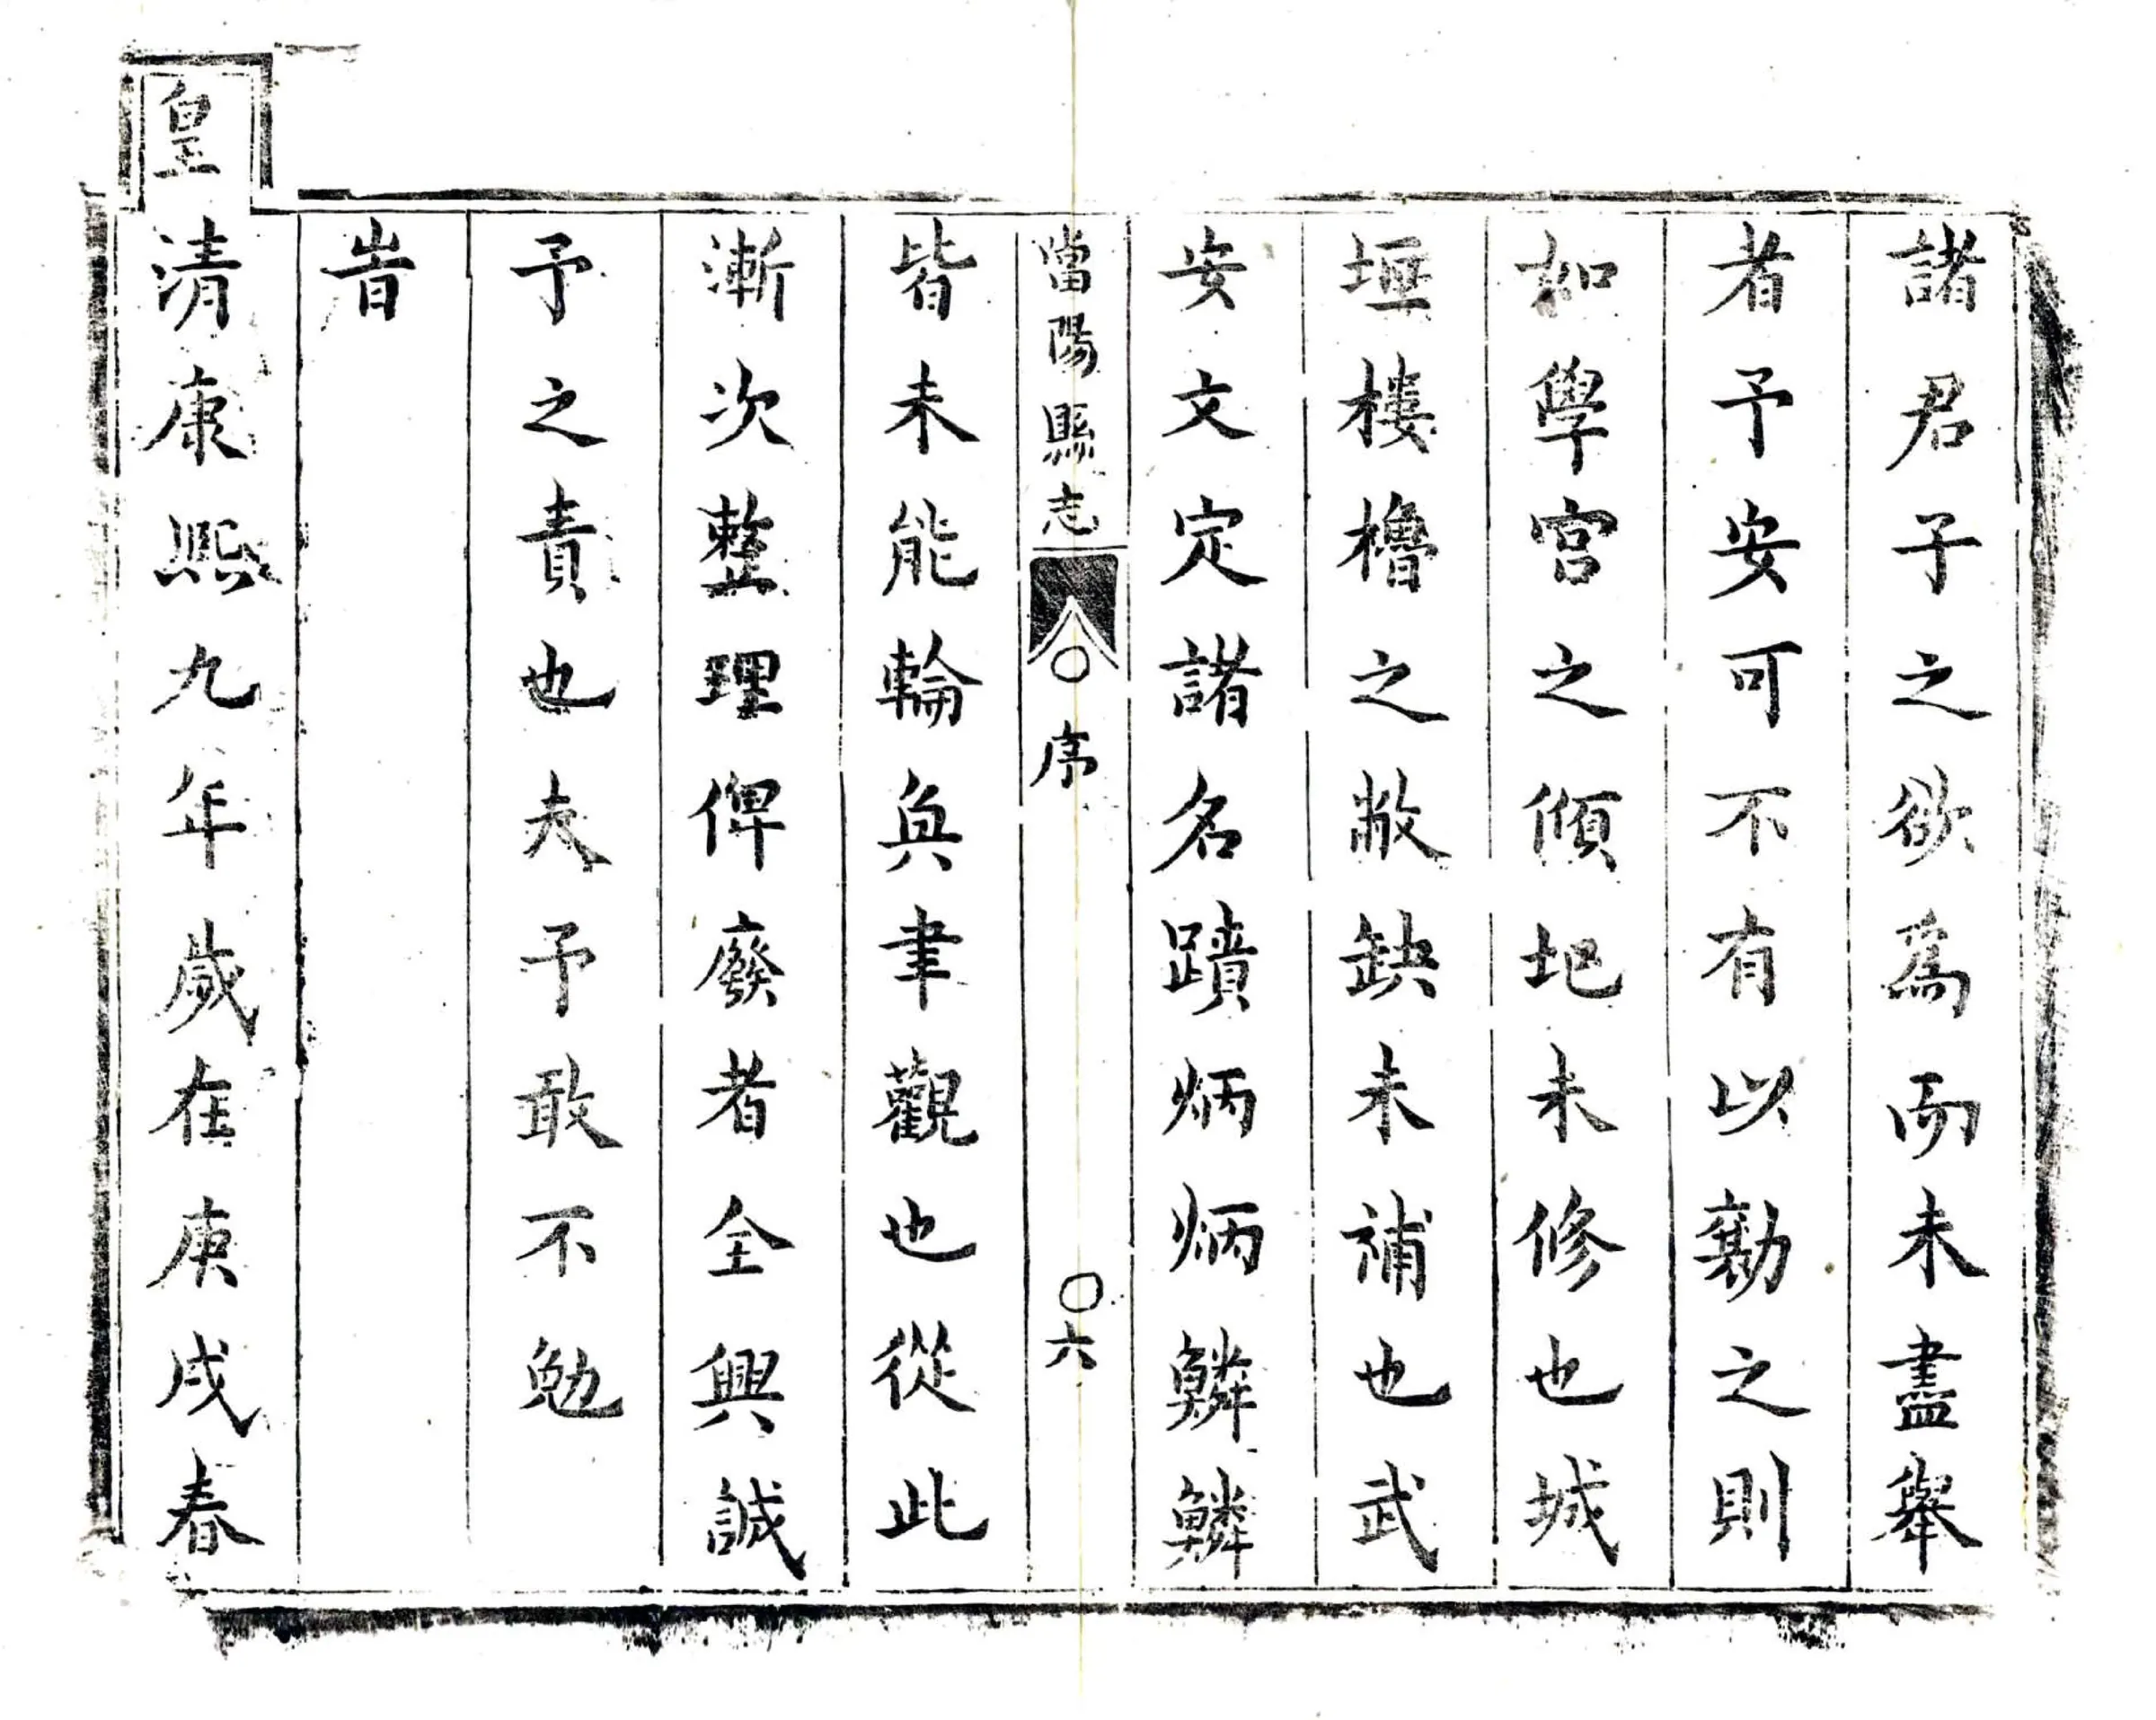 諸君子之欲為而未盡舉
者予安可不有以勷之則
如學宮之傾圯未修也城
垣樓櫓之敝缺未補也武
安文定諸名蹟炳炳鱗鱗
當陽縣志 序 六
皆未能輪奐聿觀也從此
漸次整理俾廢者全興誠
予之責也夫予敢不勉
旹
皇清康熙九年歲在庚戌春